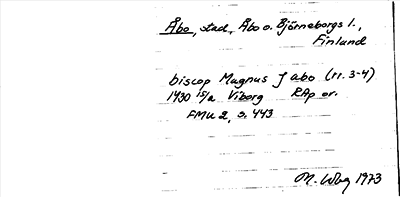 Åbo, stad, Åbo o. Björneborgs l.,
Finland
biscop Magnus j abo (rr. 3-4)
1430 15/2 Viborg RAp or.
FMU 2, s. 443
M. 1973